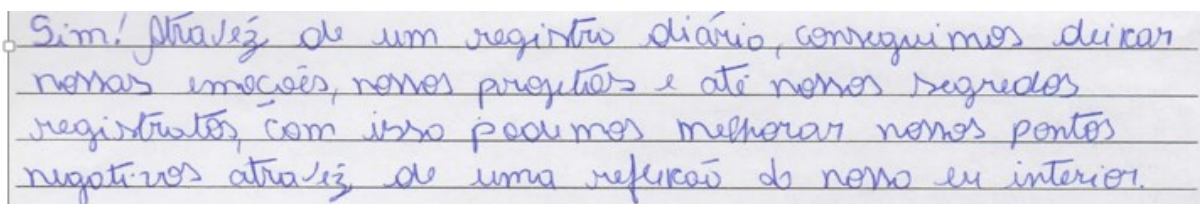 Sim! Atravéz de um registro diário, conseguimos deixar
nossas emoções, nossos projetos e até nossos segredos
registratos, com isso podemos melhorar nossos pontos
negativos atravéz de uma reflexão do nosso eu interior.